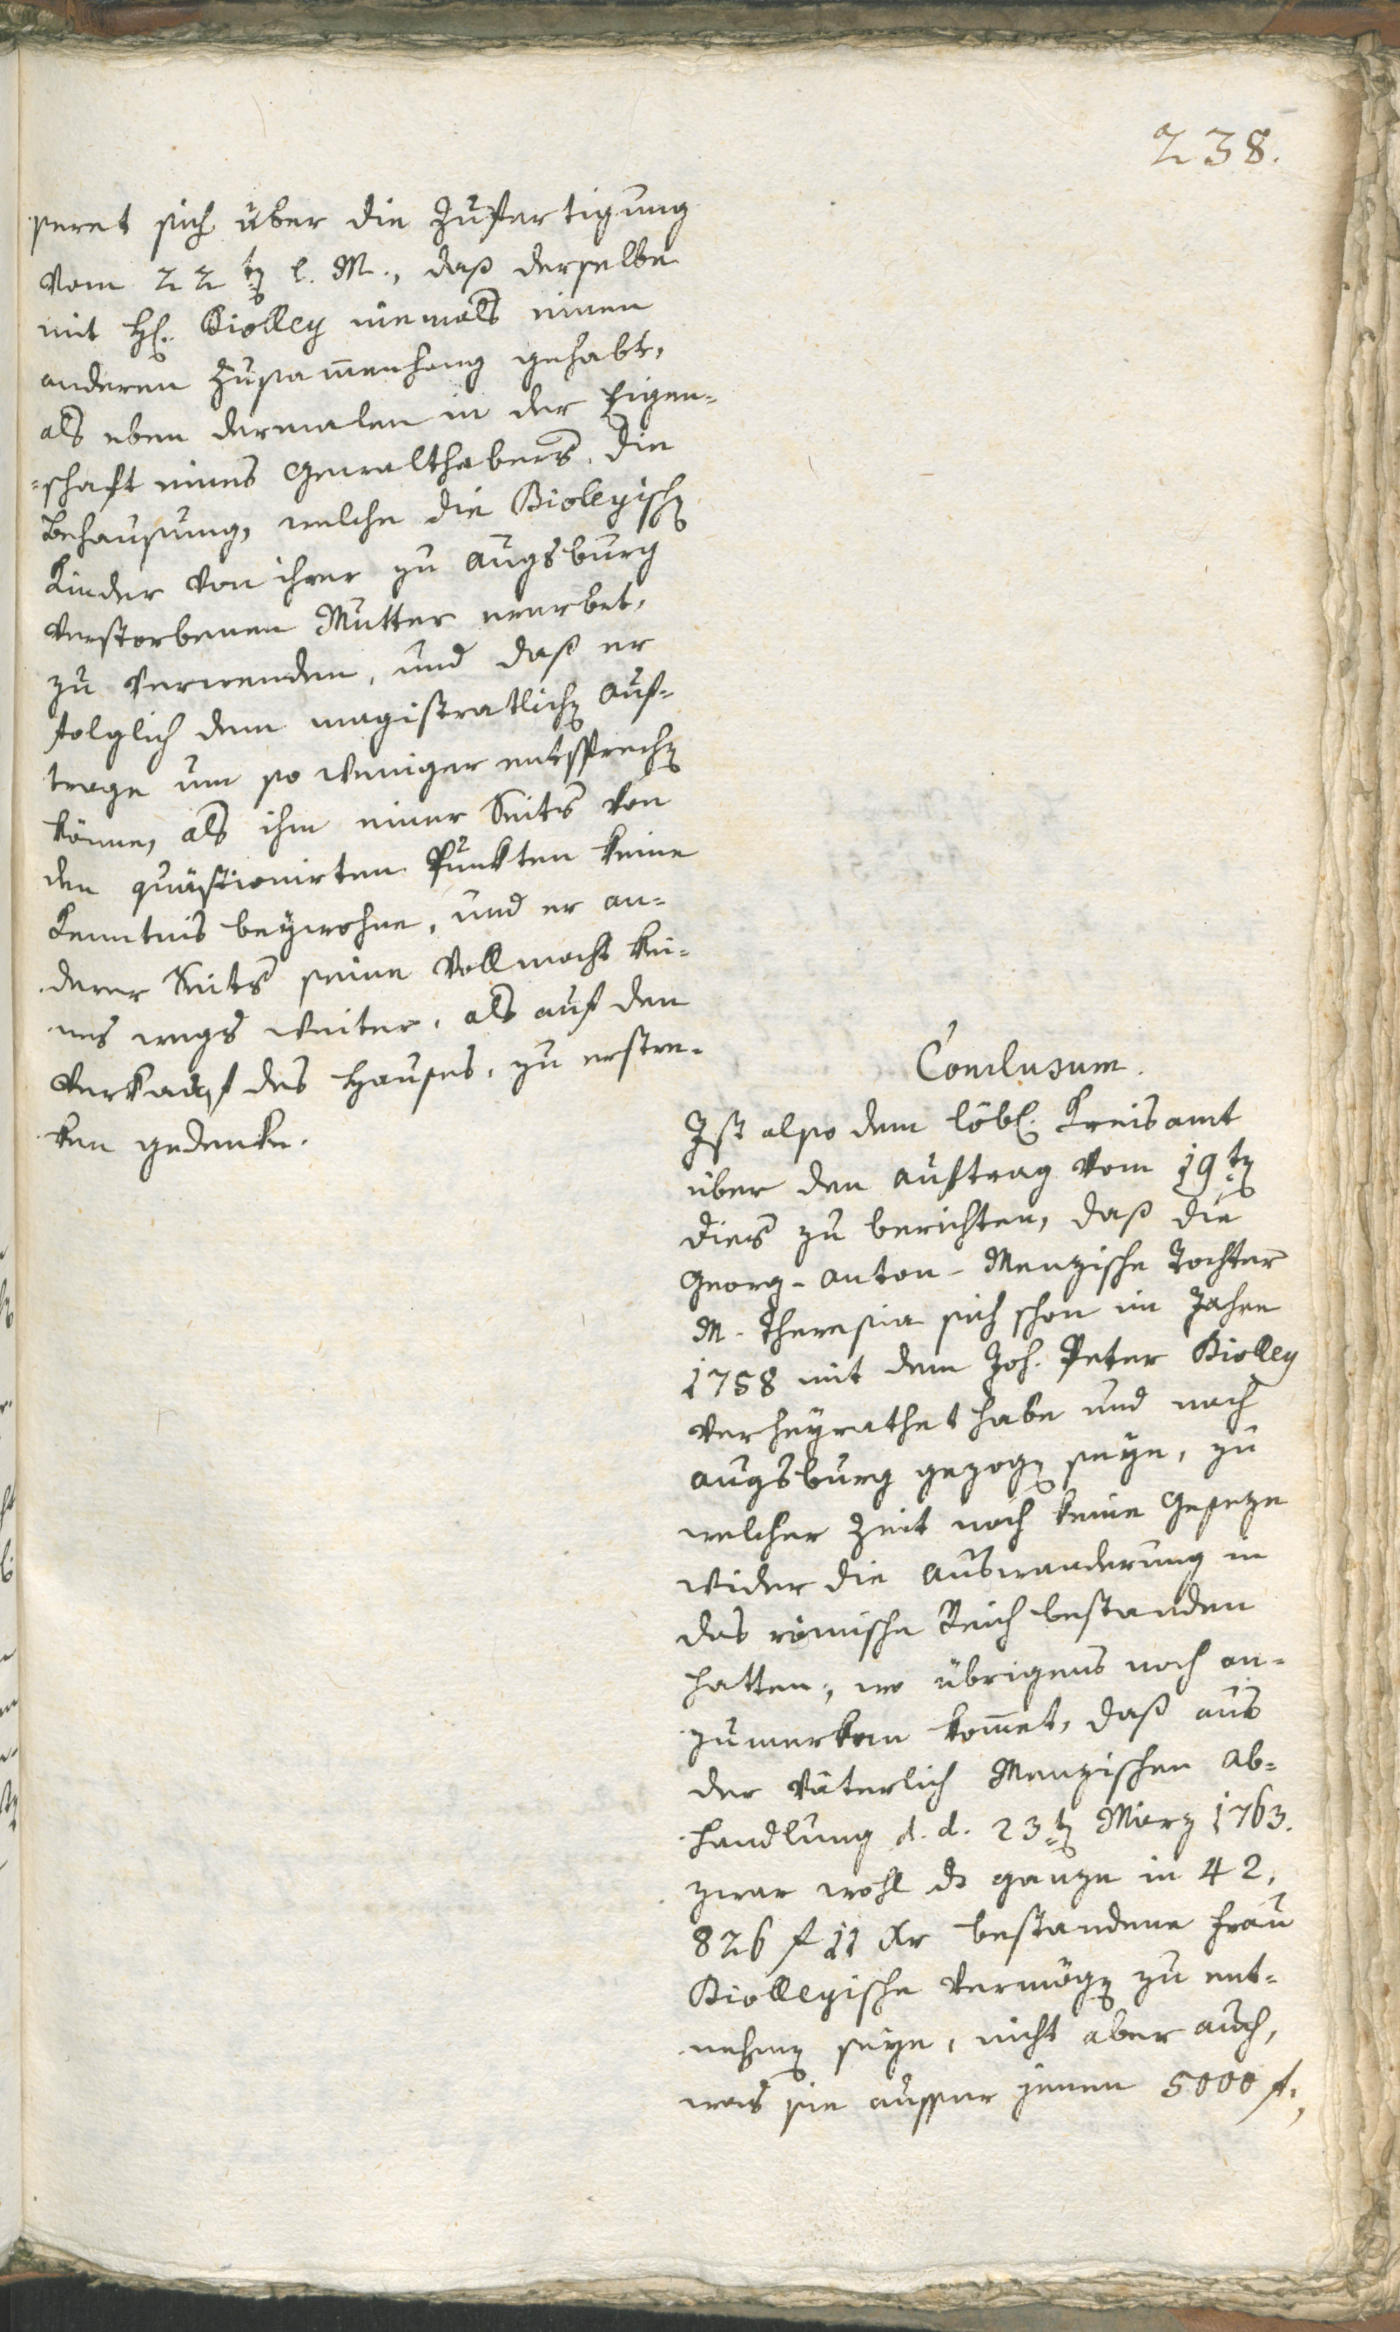 238.
seret sich über die Zufertigung
vom 22tn l. M., daß derselbe
mit H. Biolley niemals einen
anderen Zusam̄enhang gehabt,
als eben dermalen in der Eigen-
-schaft eines Gewalthabers, die
Behausung, welche die Biolleyischn
Kinder von ihrer zu Augsburg
verstorbenen Mutter ererbet,
zu verwenden, und daß er
folglich dem magistratlichn Auf-
trage um so weniger entsprechn
könne, als ihm einer Seits von
den quästionirten Punkten keine
Kenntnis beywohne, und er an-
derer Seits seine Vollmacht kei-
nes wegs weiter, als auf den
Verkauf des Hauses, zu erstre-
ken gedenke.
Conclusum.
Ist also dem löbl. Kreisamt
über den Auftrag vom 19tn
dies zu berichten, daß die
Georg-Anton-Menzische Tochter
M. Theresia sich schon im Jahre
1758 mit dem Joh. Peter Biolley
verheyrathet habe und nach
Augsburg gezogn seye, zu
welcher Zeit noch keine Geseze
wider die Auswanderung in
das römische Reich bestanden
hatten, wo übrigens noch an-
zumerken kom̄et, daß aus
der Väterlich Menzischen Ab-
handlung d. d. 23tn März 1763.
zwar wohl ds ganze in 42,
826 f 11 Xr bestandene Frau
Biolleyische Vermögn zu ent-
nehmn seye, nicht aber auch,
was sie ausser jenen 5000 f.,